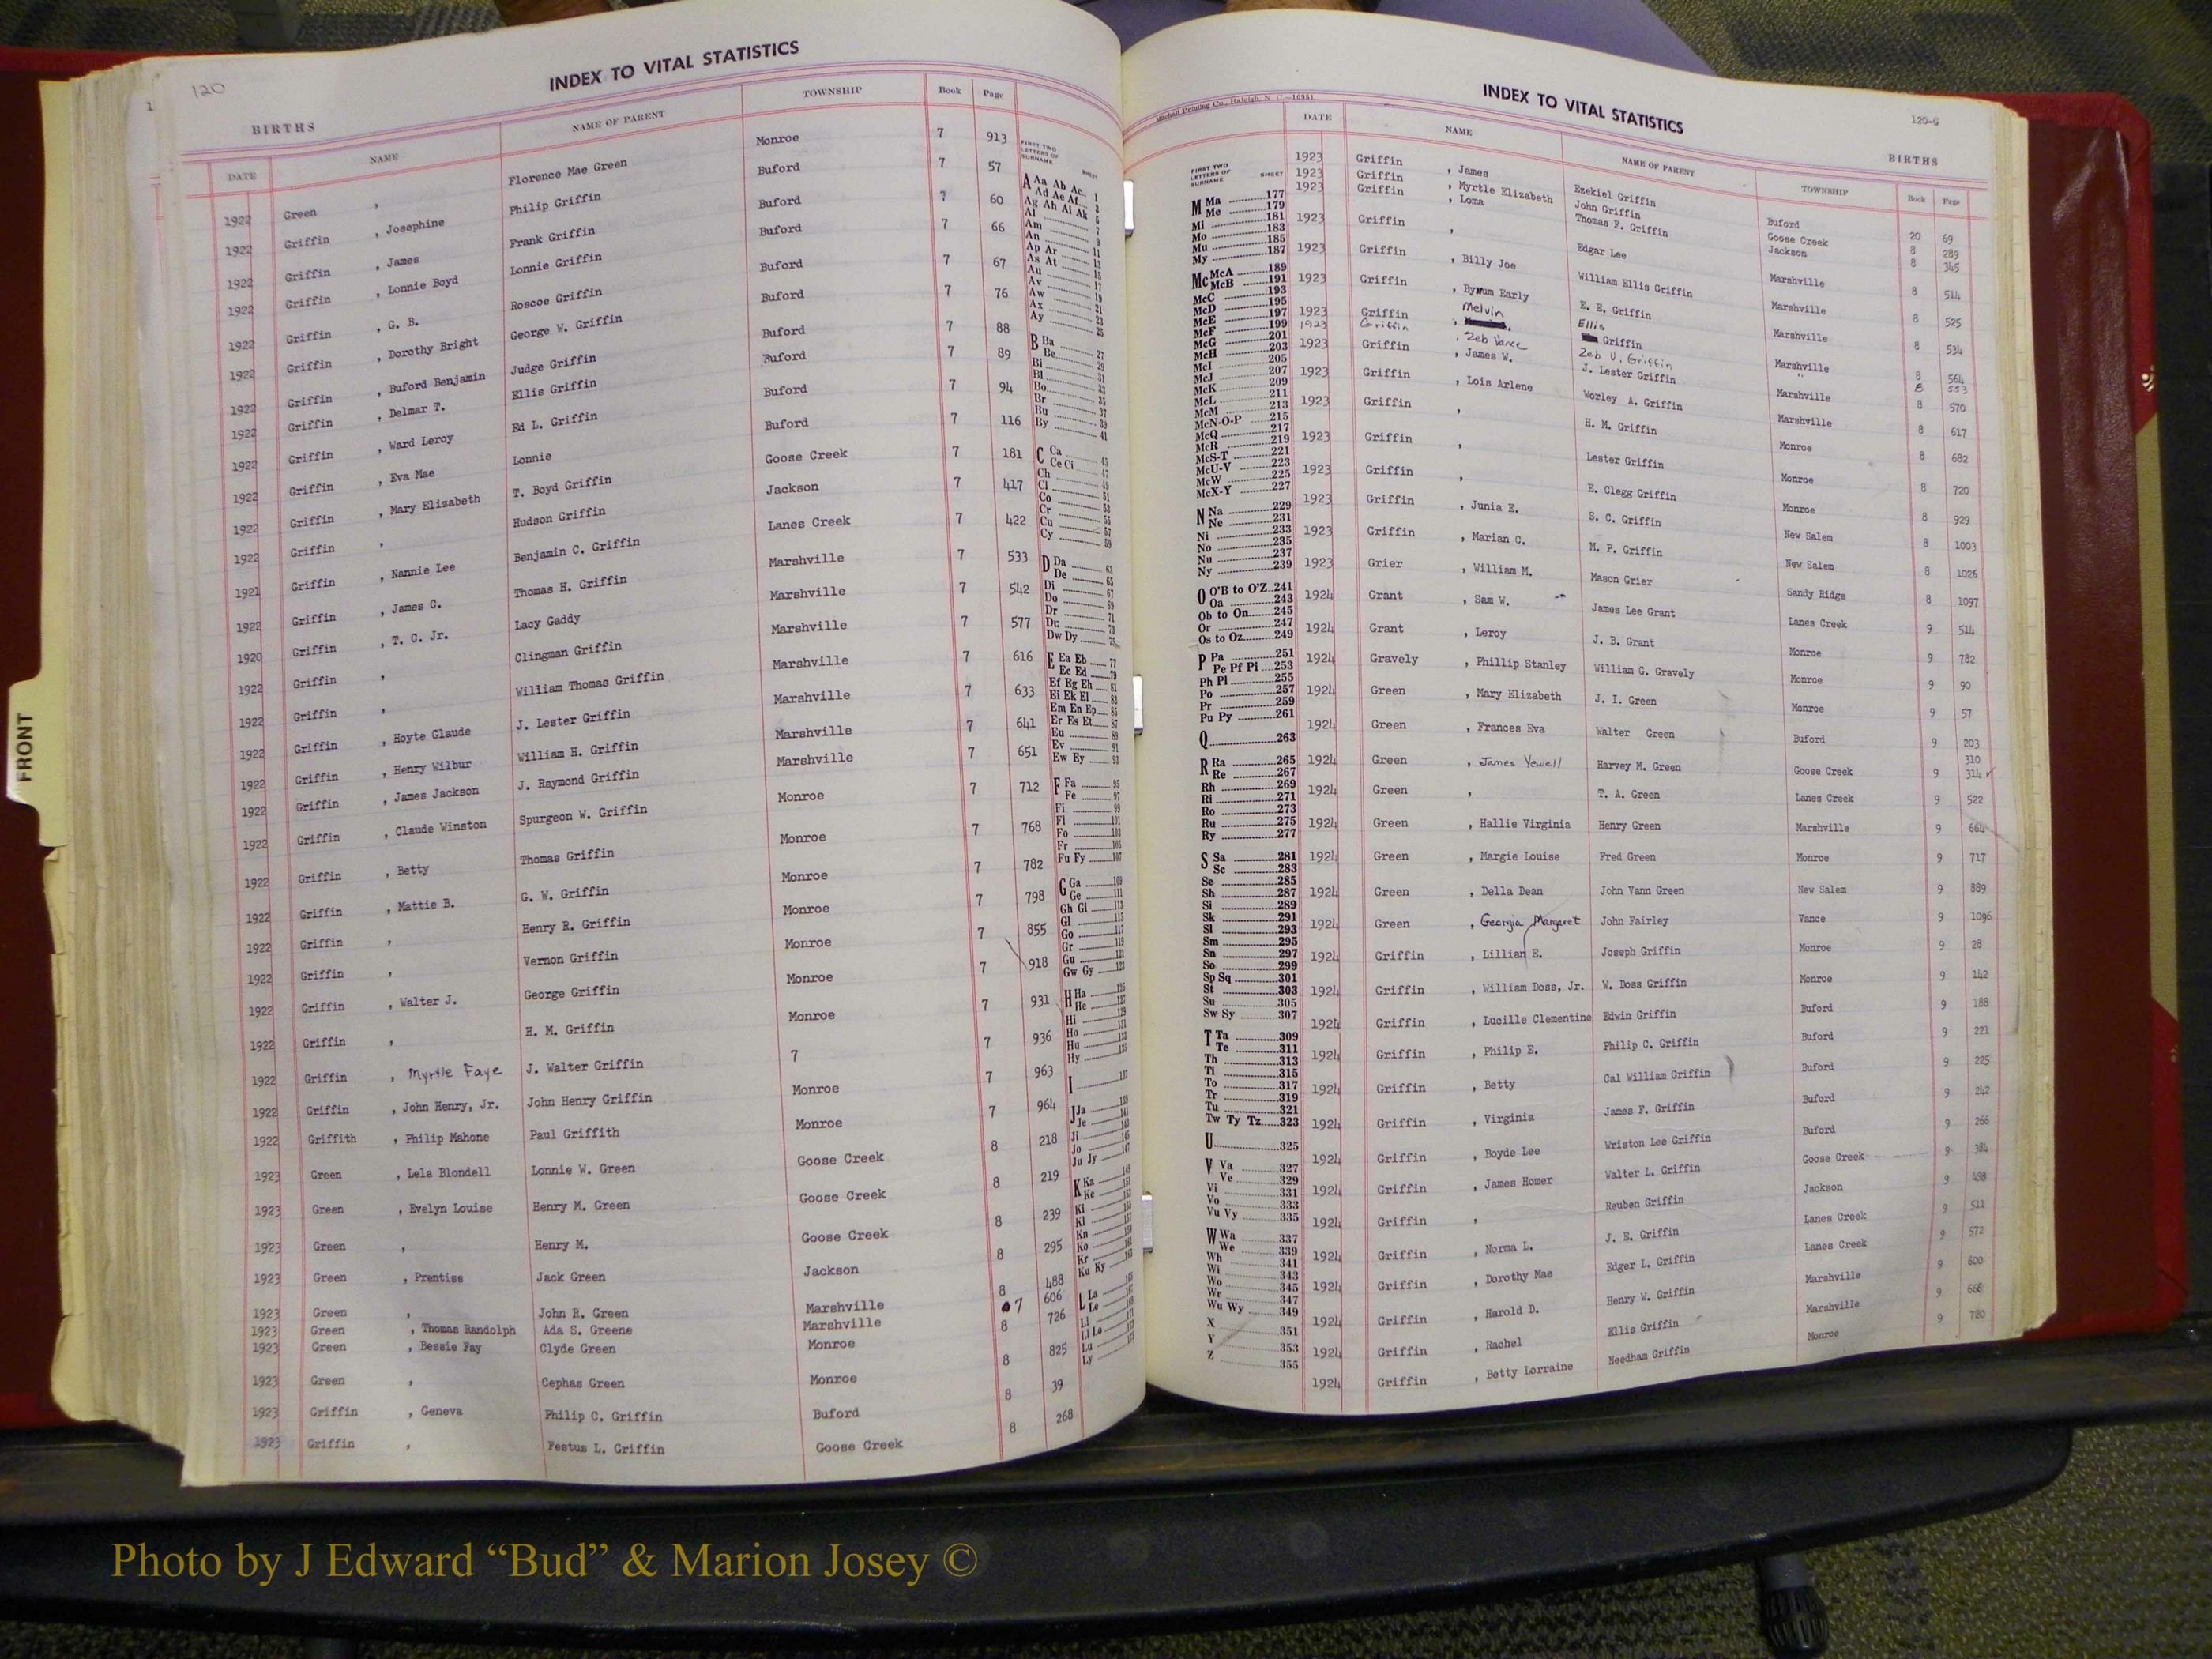 120
INDEX TO VITAL STATISTICS
BIRTHS
DATE NAME NAME OF PARENT TOWNSHIP Book Page
1922 Green , Florence Mae Green Monroe 7 913
1922 Griffin , Josephine Philip Griffin Buford 7 57
1922 Griffin , James Frank Griffin Buford 7 60
1922 Griffin , Lonnie Boyd Lonnie Griffin Buford 7 66
1922 Griffin , G. B. Roscoe Griffin Buford 7 67
1922 Griffin , Dorothy Bright George W. Griffin Buford 7 76
1922 Griffin , Buford Benjamin Judge Griffin Buford 7 88
1922 Griffin , Delmar T. Ellis Griffin Buford 7 89
1922 Griffin , Ward Leroy Ed L. Griffin Buford 7 94
1922 Griffin , Eva Mae Lonnie Buford 7 116
1922 Griffin , Mary Elizabeth T. Boyd Griffin Goose Creek 7 181
1922 Griffin , Hudson Griffin Jackson 7 417
1921 Griffin , Nannie Lee Benjamin C. Griffin Lanes Creek 7 422
1922 Griffin , James C. Thomas H. Griffin Marshville 7 533
1920 Griffin , T. C. Jr. Lacy Gaddy Marshville 7 542
1922 Griffin , Clingman Griffin Marshville 7 577
1922 Griffin , William Thomas Griffin Marshville 7 616
1922 Griffin , Hoyte Glaude J. Lester Griffin Marshville 7 633
1922 Griffin , Henry Wilbur William H. Griffin Marshville 7 641
1922 Griffin , James Jackson J. Raymond Griffin Marshville 7 651
1922 Griffin , Claude Winston Spurgeon W. Griffin Monroe 7 712
1922 Griffin , Betty Thomas Griffin Monroe 7 768
1922 Griffin , Mattie B. G. W. Griffin Monroe 7 782
1922 Griffin , Henry R. Griffin Monroe 7 798
1922 Griffin , Vernon Griffin Monroe 7 855
1922 Griffin , Walter J. George Griffin Monroe 7 918
1922 Griffin , H. M. Griffin Monroe 7 931
1922 Griffin , Myrtle Faye J. Walter Griffin 7 7 936
1922 Griffin , John Henry, Jr. John Henry Griffin Monroe 7 963
1922 Griffith , Philip Mahone Paul Griffith Monroe 7 964
1923 Green , Lela Blondell Lonnie W. Green Goose Creek 8 218
1923 Green , Evelyn Louise Henry M. Green Goose Creek 8 219
1923 Green , Henry M. Goose Creek 8 239
1923 Green , Prentiss Jack Green Jackson 8 295
1923 Green , John R. Green Marshville 8 488
1923 Green , Thomas Randolph Ada S. Greene Marshville 7 606
1923 Green , Bessie Fay Clyde Green Monroe 8 726
1923 Green , Cephas Green Monroe 8 825
1923 Griffin , Geneva Philip C. Griffin Buford 8 39
1923 Griffin , Festus L. Griffin Goose Creek 8 268
FIRST TWO LETTERS OF SURNAME SHEET
A Aa Ab Ac 1
Ad Ae Af 3
Ag Ah Ai Ak 5
Al 7
Am 9
An 11
Ap Ar 13
As At 15
Au 17
Av 19
Aw 21
Ax 23
Ay 25
B Ba 27
Be 29
Bi 31
Bl 33
Bo 35
Br 37
Bu 39
By 41
C Ca 45
Ce Ci 47
Ch 49
Cl 51
Co 53
Cr 55
Cu 57
Cy 59
D Da 63
De 65
Di 67
Do 69
Dr 71
Du 73
Dw Dy 75
E Ea Eb 77
Ec Ed 79
Ef Eg Eh 81
Ei Ek El 83
Em En Ep 85
Er Es Et 87
Eu 89
Ev 91
Ew Ey 93
F Fa 95
Fe 97
Fi 99
Fl 101
Fo 103
Fr 105
Fu Fy 107
G Ga 109
Ge 111
Gh Gi 113
Gl 115
Go 117
Gr 119
Gu 121
Gw Gy 123
H Ha 125
He 127
Hi 129
Ho 131
Hu 133
Hy 135
I 137
J Ja 139
Je 141
Ji 143
Jo 145
Ju Jy 147
K Ka 149
Ke 151
Ki
Kl
Kn
Ko
Kr
Ku Ky
L La
Le
Li
Ll Lo
Lu
Ly 175
FRONT
Mitchell Printing Co., Raleigh, N. C.—10551
INDEX TO VITAL STATISTICS
120-G
BIRTHS
FIRST TWO LETTERS OF SURNAME SHEET
M Ma 177
Me 179
Mi 181
Mo 183
Mu 185
My 187
Mc McA 189
McB 191
McC 193
McD 195
McE 197
McF 199
McG 201
McH 203
McI 205
McJ 207
McK 209
McL 211
McM 213
McN-O-P 215
McQ 217
McR 219
McS-T 221
McU-V 223
McW 225
McX-Y 227
N Na 229
Ne 231
Ni 233
No 235
Nu 237
Ny 239
O O'B to O'Z 241
Oa 243
Ob to On 245
Or 247
Os to Oz 249
P Pa 251
Pe Pf Pi 253
Ph Pl 255
Po 257
Pr 259
Pu Py 261
Q 263
R Ra 265
Re 267
Rh 269
Ri 271
Ro 273
Ru 275
Ry 277
S Sa 281
Sc 283
Se 285
Sh 287
Si 289
Sk 291
Sl 293
Sm 295
Sn 297
So 299
Sp Sq 301
St 303
Su 305
Sw Sy 307
T Ta 309
Te 311
Th 313
Ti 315
To 317
Tr 319
Tu 321
Tw Ty Tz 323
U 325
V Va 327
Ve 329
Vi 331
Vo 333
Vu Vy 335
W Wa 337
We 339
Wh 341
Wi 343
Wo 345
Wr 347
Wu Wy 349
X 351
Y 353
Z 355
DATE NAME NAME OF PARENT TOWNSHIP Book Page
1923 Griffin , James Ezekiel Griffin Buford 20 69
1923 Griffin , Myrtle Elizabeth John Griffin Goose Creek 8 289
1923 Griffin , Loma Thomas F. Griffin Jackson 8 345
1923 Griffin , Edgar Lee Marshville 8 514
1923 Griffin , Billy Joe William Ellis Griffin Marshville 8 525
1923 Griffin , Bynum Early E. E. Griffin Marshville 8 534
1923 Griffin , Melvin Ellis Griffin Marshville 8 564
1923 Griffin , Zeb Vance Zeb V. Griffin " 8 553
1923 Griffin , James W. J. Lester Griffin Marshville 8 570
1923 Griffin , Lois Arlene Worley A. Griffin Marshville 8 617
1923 Griffin , H. M. Griffin Monroe 8 682
1923 Griffin , Lester Griffin Monroe 8 720
1923 Griffin , E. Clegg Griffin Monroe 8 929
1923 Griffin , Junia E. S. C. Griffin New Salem 8 1003
1923 Griffin , Marian C. M. P. Griffin New Salem 8 1026
1923 Grier , William M. Mason Grier Sandy Ridge 8 1097
1924 Grant , Sam W. James Lee Grant Lanes Creek 9 514
1924 Grant , Leroy J. B. Grant Monroe 9 782
1924 Gravely , Phillip Stanley William G. Gravely Monroe 9 90
1924 Green , Mary Elizabeth J. I. Green Monroe 9 57
1924 Green , Frances Eva Walter Green Buford 9 203
310
1924 Green , James Yowell Harvey M. Green Goose Creek 9 314 ✓
1924 Green , T. A. Green Lanes Creek 9 522
1924 Green , Hallie Virginia Henry Green Marshville 9 664
1924 Green , Margie Louise Fred Green Monroe 9 717
1924 Green , Della Dean John Vann Green New Salem 9 889
1924 Green , Georgia Margaret John Fairley Vance 9 1096
1924 Griffin , Lillian E. Joseph Griffin Monroe 9 28
1924 Griffin , William Doss, Jr. W. Doss Griffin Monroe 9 142
1924 Griffin , Lucille Clementine Edwin Griffin Buford 9 188
1924 Griffin , Philip E. Philip C. Griffin Buford 9 221
1924 Griffin , Betty Cal William Griffin Buford 9 225
1924 Griffin , Virginia James F. Griffin Buford 9 242
1924 Griffin , Boyde Lee Wriston Lee Griffin Buford 9 266
1924 Griffin , James Homer Walter L. Griffin Goose Creek 9 384
1924 Griffin , Reuben Griffin Jackson 9 498
1924 Griffin , Norma L. J. E. Griffin Lanes Creek 9 511
1924 Griffin , Dorothy Mae Edger L. Griffin Lanes Creek 9 572
1924 Griffin , Harold D. Henry W. Griffin Marshville 9 600
1924 Griffin , Rachel Ellis Griffin Marshville 9 666
1924 Griffin , Betty Lorraine Needham Griffin Monroe 9 720
Photo by J Edward “Bud” & Marion Josey ©